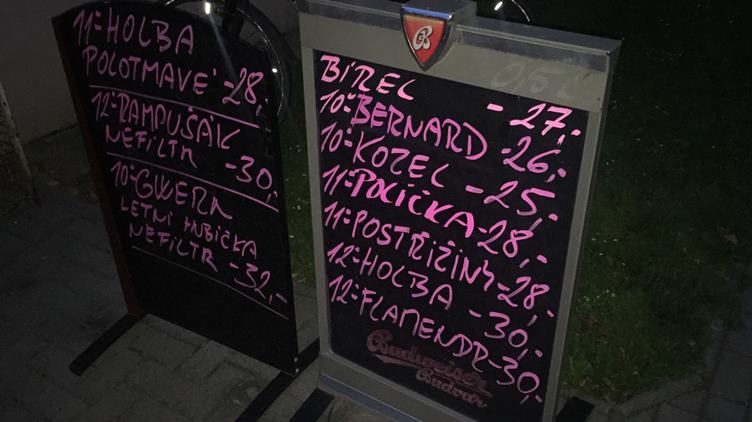 11° HOLBA
POLOTMAVÉ -28,-
12° RAMPUŠÁK
NEFILTR -30,-
10° GWERN
LETNÍ HUBIČKA
NEFILTR -32,-
BIREL -27,-
10° BERNARD -26,-
10° KOZEL -25,-
11° POLIČKA -28,-
11° POSTŘIŽINY -28,-
12° HOLBA -30,-
12° FLAMENDR -30,-
Budweiser
Budvar